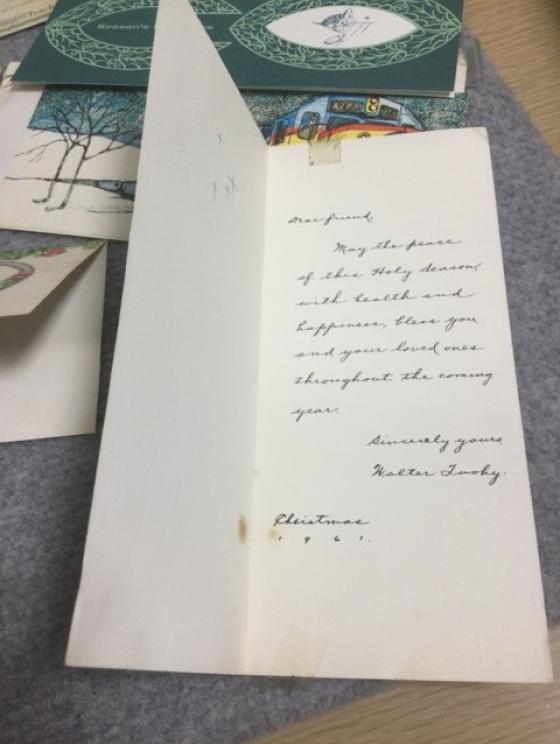 Season's
Dear friend,
May the peace
of this Holy Season,
with health and
happiness, bless you
and your loved ones
throughout the coming
year.
Sincerely yours,
Walter
Christmas
1961.